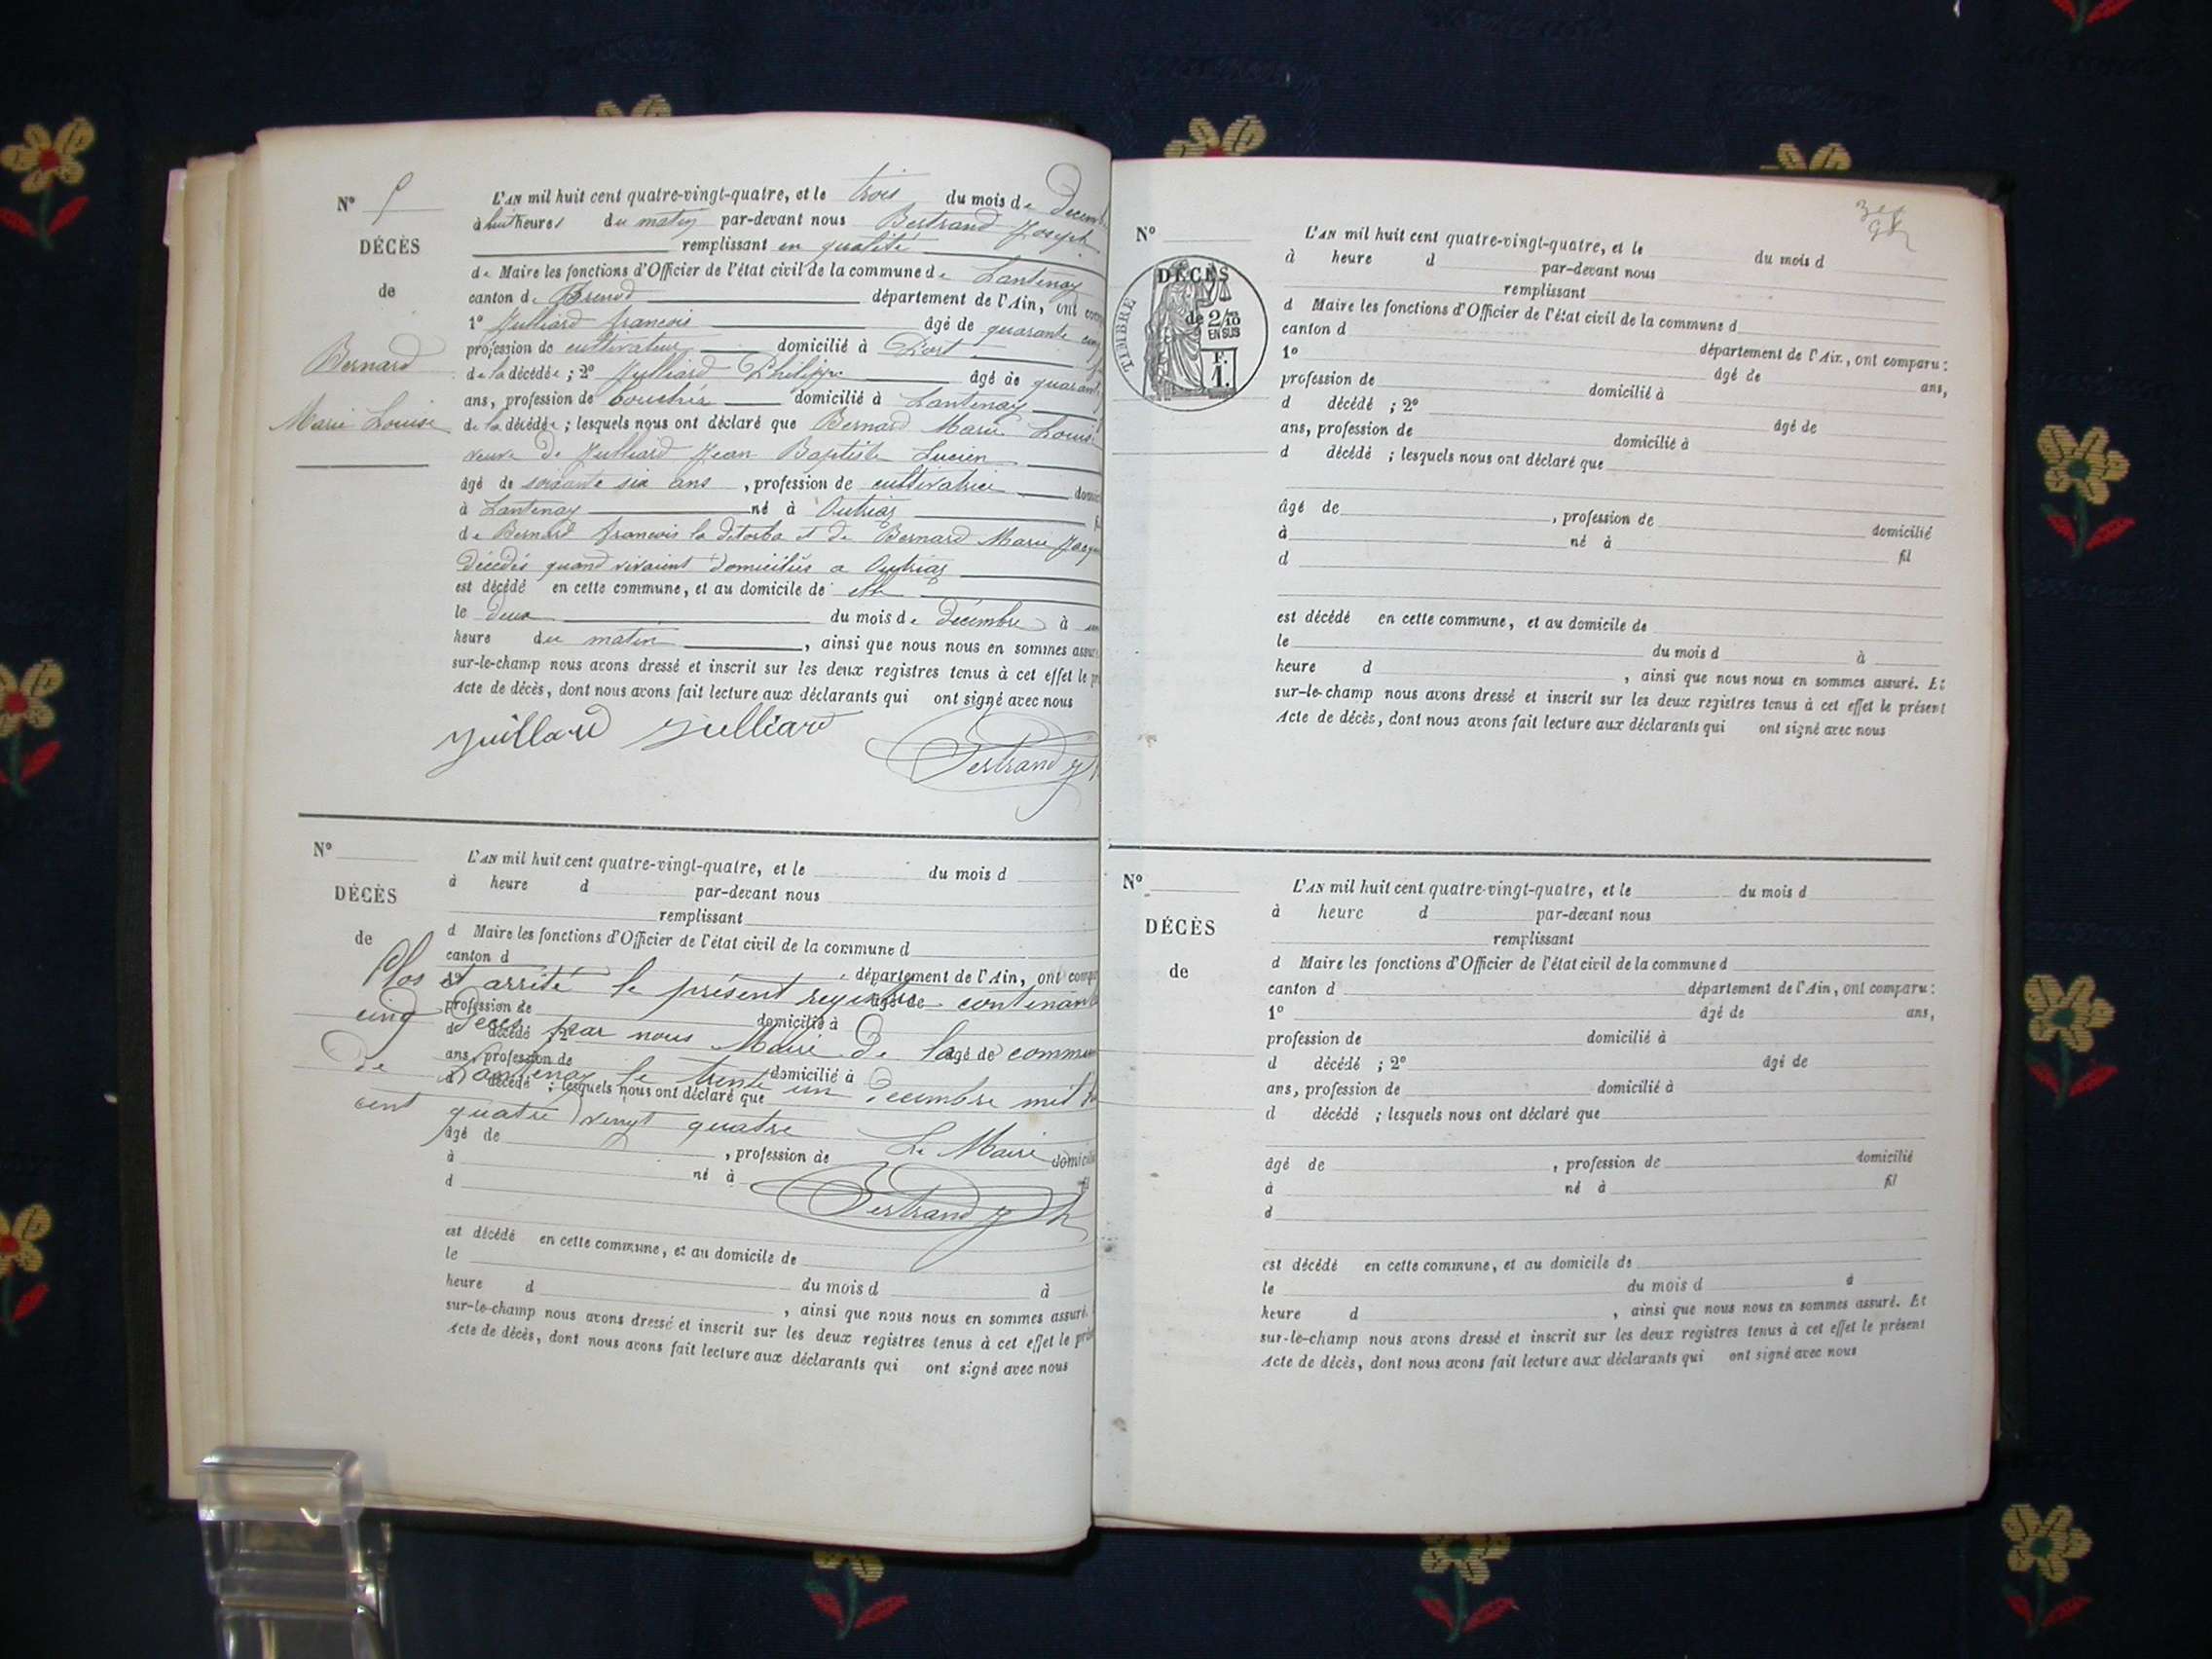 N° 5
DÉCÈS
de
Bernard
Marie Louise
L'AN mil huit cent quatre-vingt-quatre, et le trois du mois de Décem
à huit heures du matin par-devant nous Bertrand Joseph
remplissant en qualité
de Maire les fonctions d'Officier de l'état civil de la commune de Lantenay
canton de Brenod département de l'Ain, ont com
1° Julliard francois âgé de quarante cinq
profession de cultivateur domicilié à Port
de la décédée ; 2° Julliard Philippe âgé de quarant
ans, profession de boucher domicilié à Lantenay
de la décédée ; lesquels nous ont déclaré que Bernard Marie Louise
veuve de Julliard Jean Baptiste Lucien
âgé de soixante six ans, profession de cultivatrice domici
à Lantenay né à Outriaz fil
de Bernard francois la detorba et de Bernard Marie Jacq
Décédés quand vivaient domiciliés a Outriaz
est décédé en cette commune, et au domicile de elle
le deux du mois de décembre à une
heure du matin, ainsi que nous nous en sommes assuré
sur-le-champ nous avons dressé et inscrit sur les deux registres tenus à cet effet le pr
Acte de décès, dont nous avons fait lecture aux déclarants qui ont signé avec nous
Juillard Julliard
Bertrand Jh
N°
DÉCÈS
de
L'AN mil huit cent quatre-vingt-quatre, et le du mois d
à heure d par-devant nous
remplissant
d Maire les fonctions d'Officier de l'état civil de la commune d
canton d département de l'Ain, ont compa
Clos et arrêté le présent registre contenant
âgé de
profession de domicilié à
cinq Décès par nous Maire de la commun
d décédé ; 2° âgé de
ans, profession de domicilié à
de Lantenay le trente un Décembre mil h
d décédé ; lesquels nous ont déclaré que
cent quatre vingt quatre
âgé de , profession de domicilié
Le Maire
à né à fil
d
Bertrand Jh
est décédé en cette commune, et au domicile de
le du mois d à
heure d , ainsi que nous nous en sommes assuré.
sur-le-champ nous avons dressé et inscrit sur les deux registres tenus à cet effet le prés
Acte de décès, dont nous avons fait lecture aux déclarants qui ont signé avec nous
N°
DÉCÈS
de
TIMBRE
2/10
EN SUS
F.
1.
L'AN mil huit cent quatre-vingt-quatre, et le du mois d
à heure d par-devant nous
remplissant
d Maire les fonctions d'Officier de l'état civil de la commune d
canton d département de l'Ain, ont comparu :
1° âgé de ans,
profession de domicilié à
d décédé ; 2° âgé de
ans, profession de domicilié à
d décédé ; lesquels nous ont déclaré que
âgé de , profession de domicilié
à né à fil
d
est décédé en cette commune, et au domicile de
le du mois d à
heure d , ainsi que nous nous en sommes assuré. Et
sur-le-champ nous avons dressé et inscrit sur les deux registres tenus à cet effet le présent
Acte de décès, dont nous avons fait lecture aux déclarants qui ont signé avec nous
N°
DÉCÈS
de
L'AN mil huit cent quatre-vingt-quatre, et le du mois d
à heure d par-devant nous
remplissant
d Maire les fonctions d'Officier de l'état civil de la commune d
canton d département de l'Ain, ont comparu :
1° âgé de ans,
profession de domicilié à
d décédé ; 2° âgé de
ans, profession de domicilié à
d décédé ; lesquels nous ont déclaré que
âgé de , profession de domicilié
à né à fil
d
est décédé en cette commune, et au domicile de
le du mois d à
heure d , ainsi que nous nous en sommes assuré. Et
sur-le-champ nous avons dressé et inscrit sur les deux registres tenus à cet effet le présent
Acte de décès, dont nous avons fait lecture aux déclarants qui ont signé avec nous